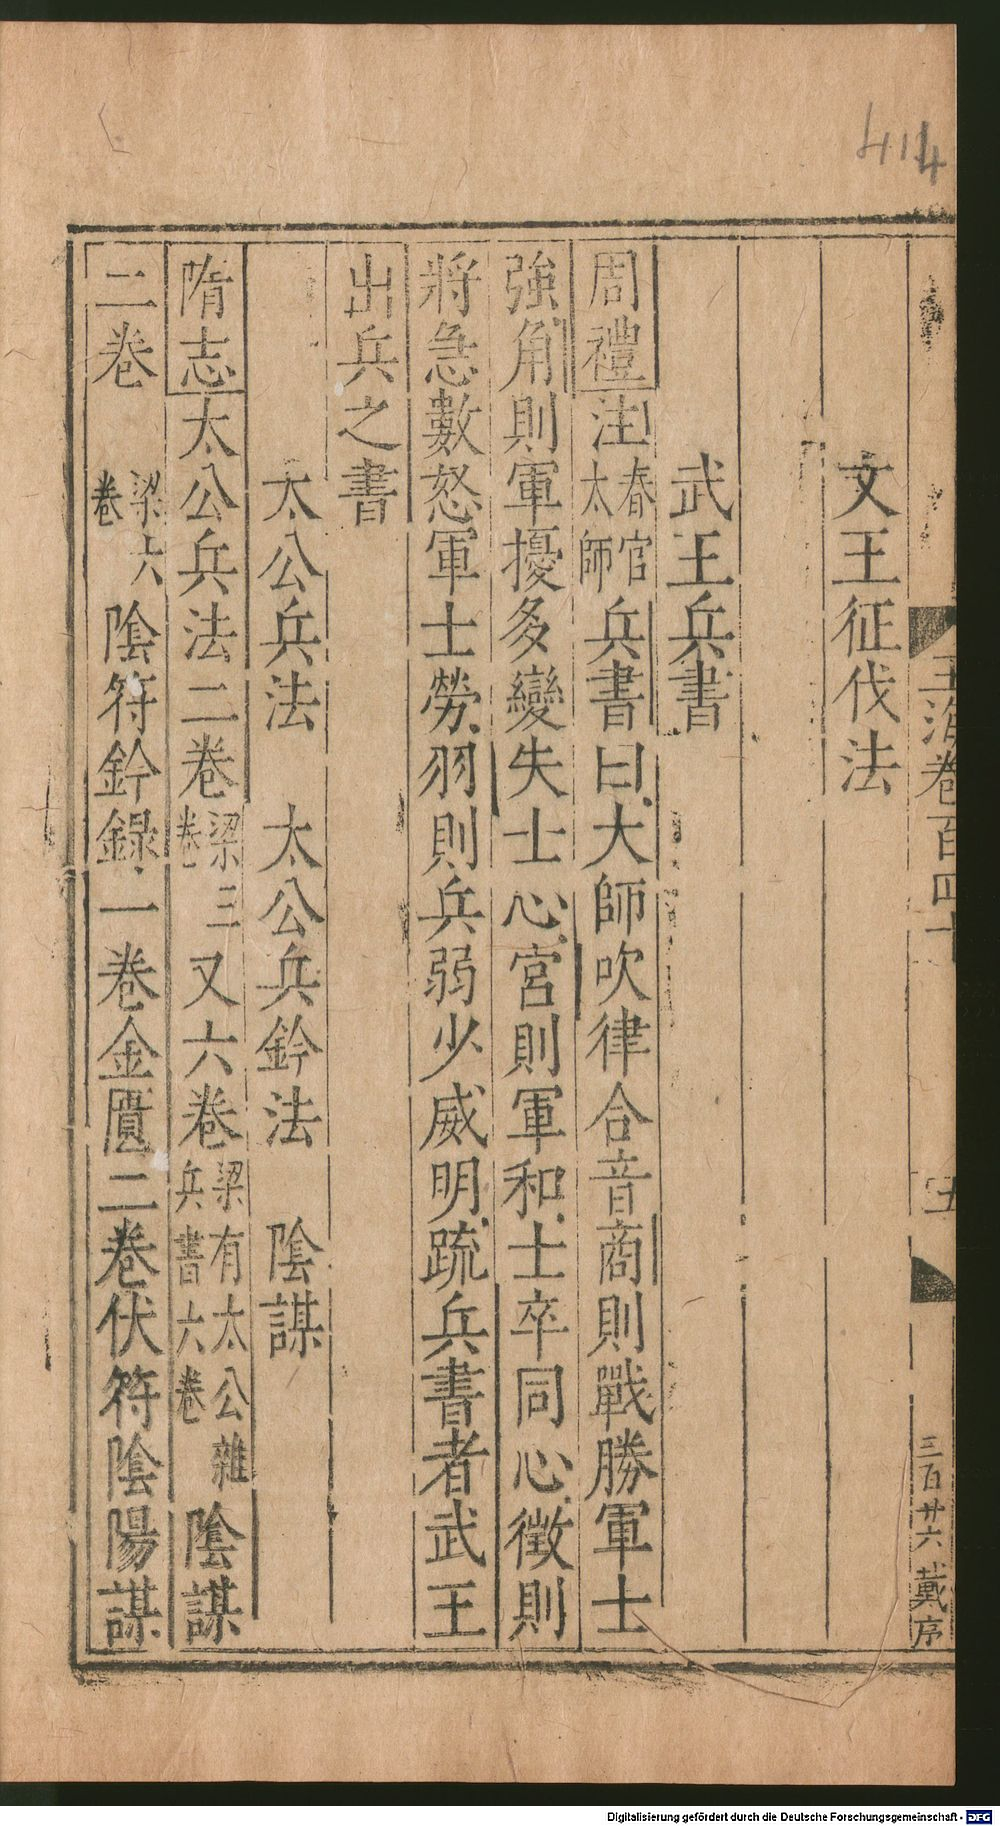 414
玉海卷百四十
五
三百廿六
戴序
文王征伐法
武王兵書
周禮注春官太師兵書曰大師吹律合音商則戰勝軍士
強角則軍擾多變失士心宮則軍和士卒同心徵則
將急數怒軍士勞羽則兵弱少威明疏兵書者武王
出兵之書
太公兵法 太公兵鈐法 陰謀
隋志太公兵法二卷梁三卷又六卷梁有太公雜兵書六卷陰謀
二卷 梁六卷 陰符鈐錄一卷金匱二卷伏符陰陽謀
Digitalisierung gefördert durch die Deutsche Forschungsgemeinschaft - DFG